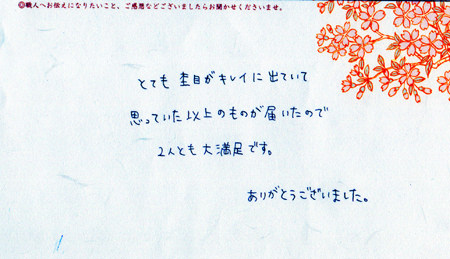 ◎職人へお伝えになりたいこと、ご感想などございましたらお聞かせくださいませ。
とても 杢目がキレイに出ていて
思っていた以上のものが届いたので
2人とも大満足です。
ありがとうございました。